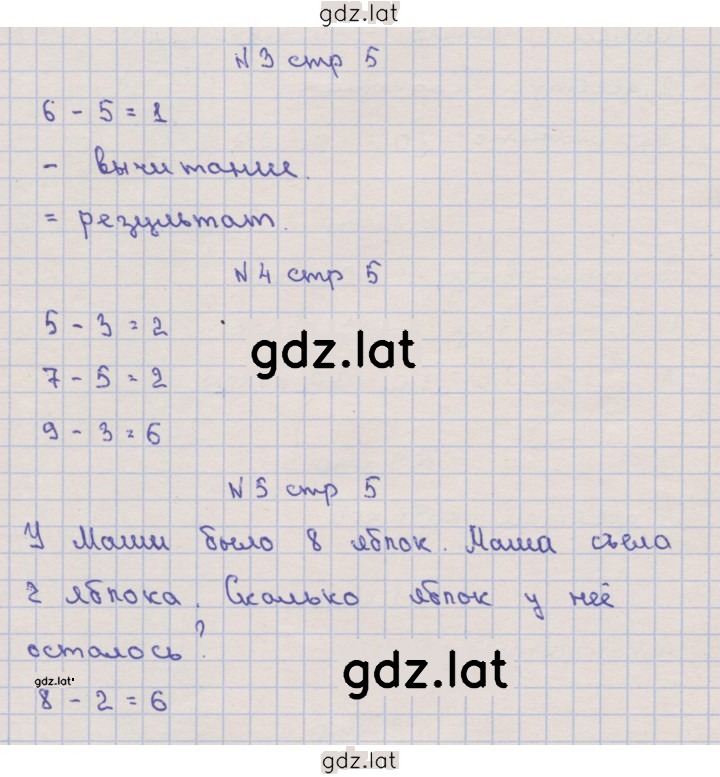 gdz.lat
N 3 стр 5
6 - 5 = 1
- вычитание.
= результат.
N 4 стр 5
5 - 3 = 2
gdz.lat
7 - 5 = 2
9 - 3 = 6
N 5 стр 5
У Маши было 8 яблок. Маша съела
2 яблока. Сколько яблок у неё
осталось?
gdz.lat
gdz.lat
8 - 2 = 6
gdz.lat